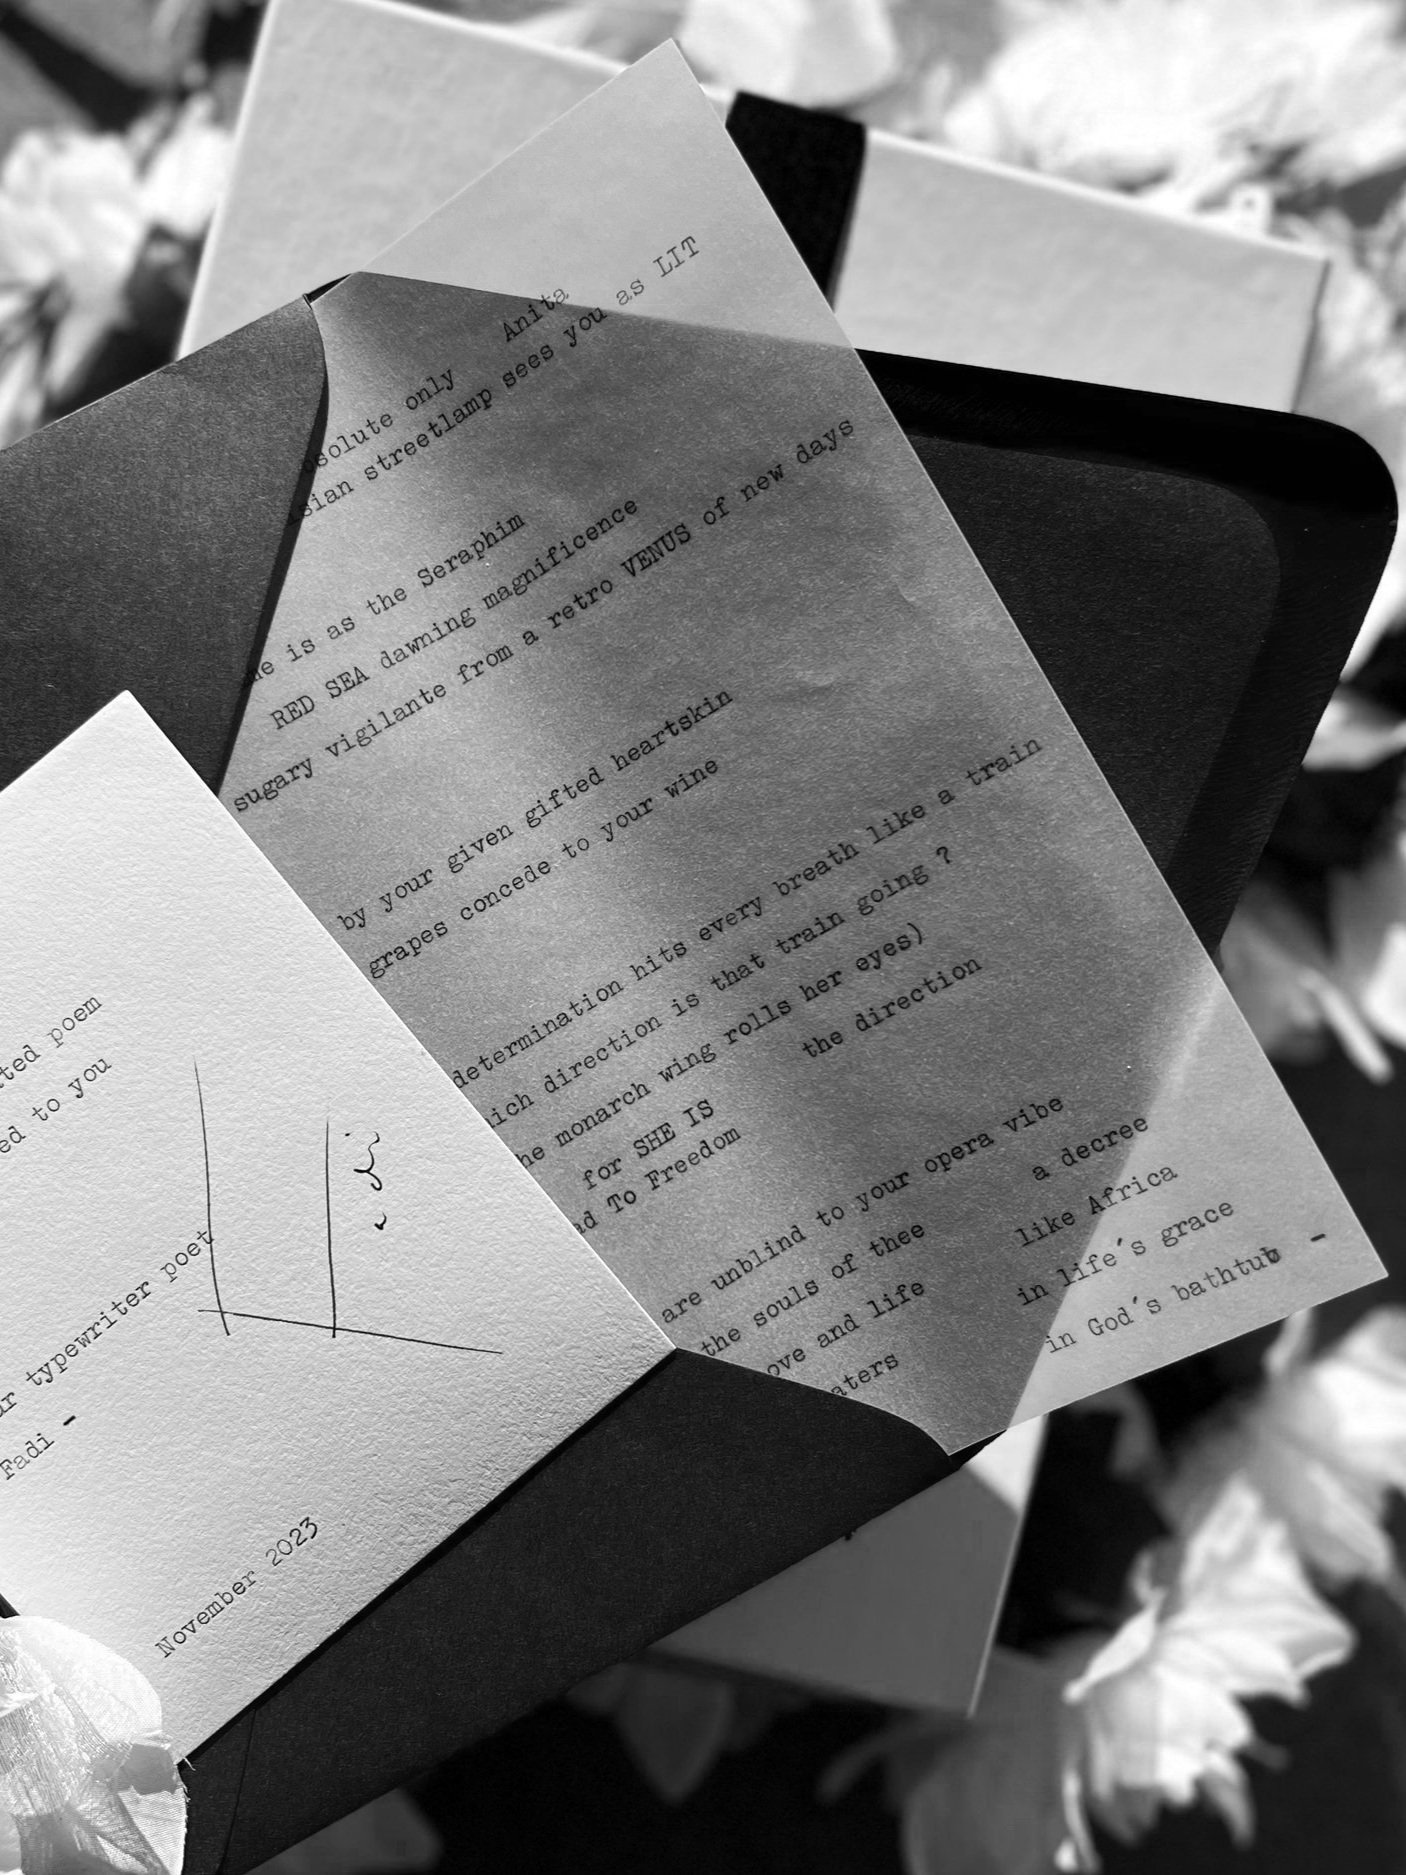 Anita
only
streetlamp sees you as LIT
is as the Seraphim
RED SEA dawning magnificence
sugary vigilante from a retro VENUS of new days
by your given gifted heartskin
grapes concede to your wine
determination hits every breath like a train
direction is that train going ?
monarch wing rolls her eyes)
the direction
for SHE IS
To Freedom
are unblind to your opera vibe
the souls of thee a decree
and life like Africa
in life's grace
in God's bathtub -
poem
to you
typewriter poet
Fadi -
November 2023